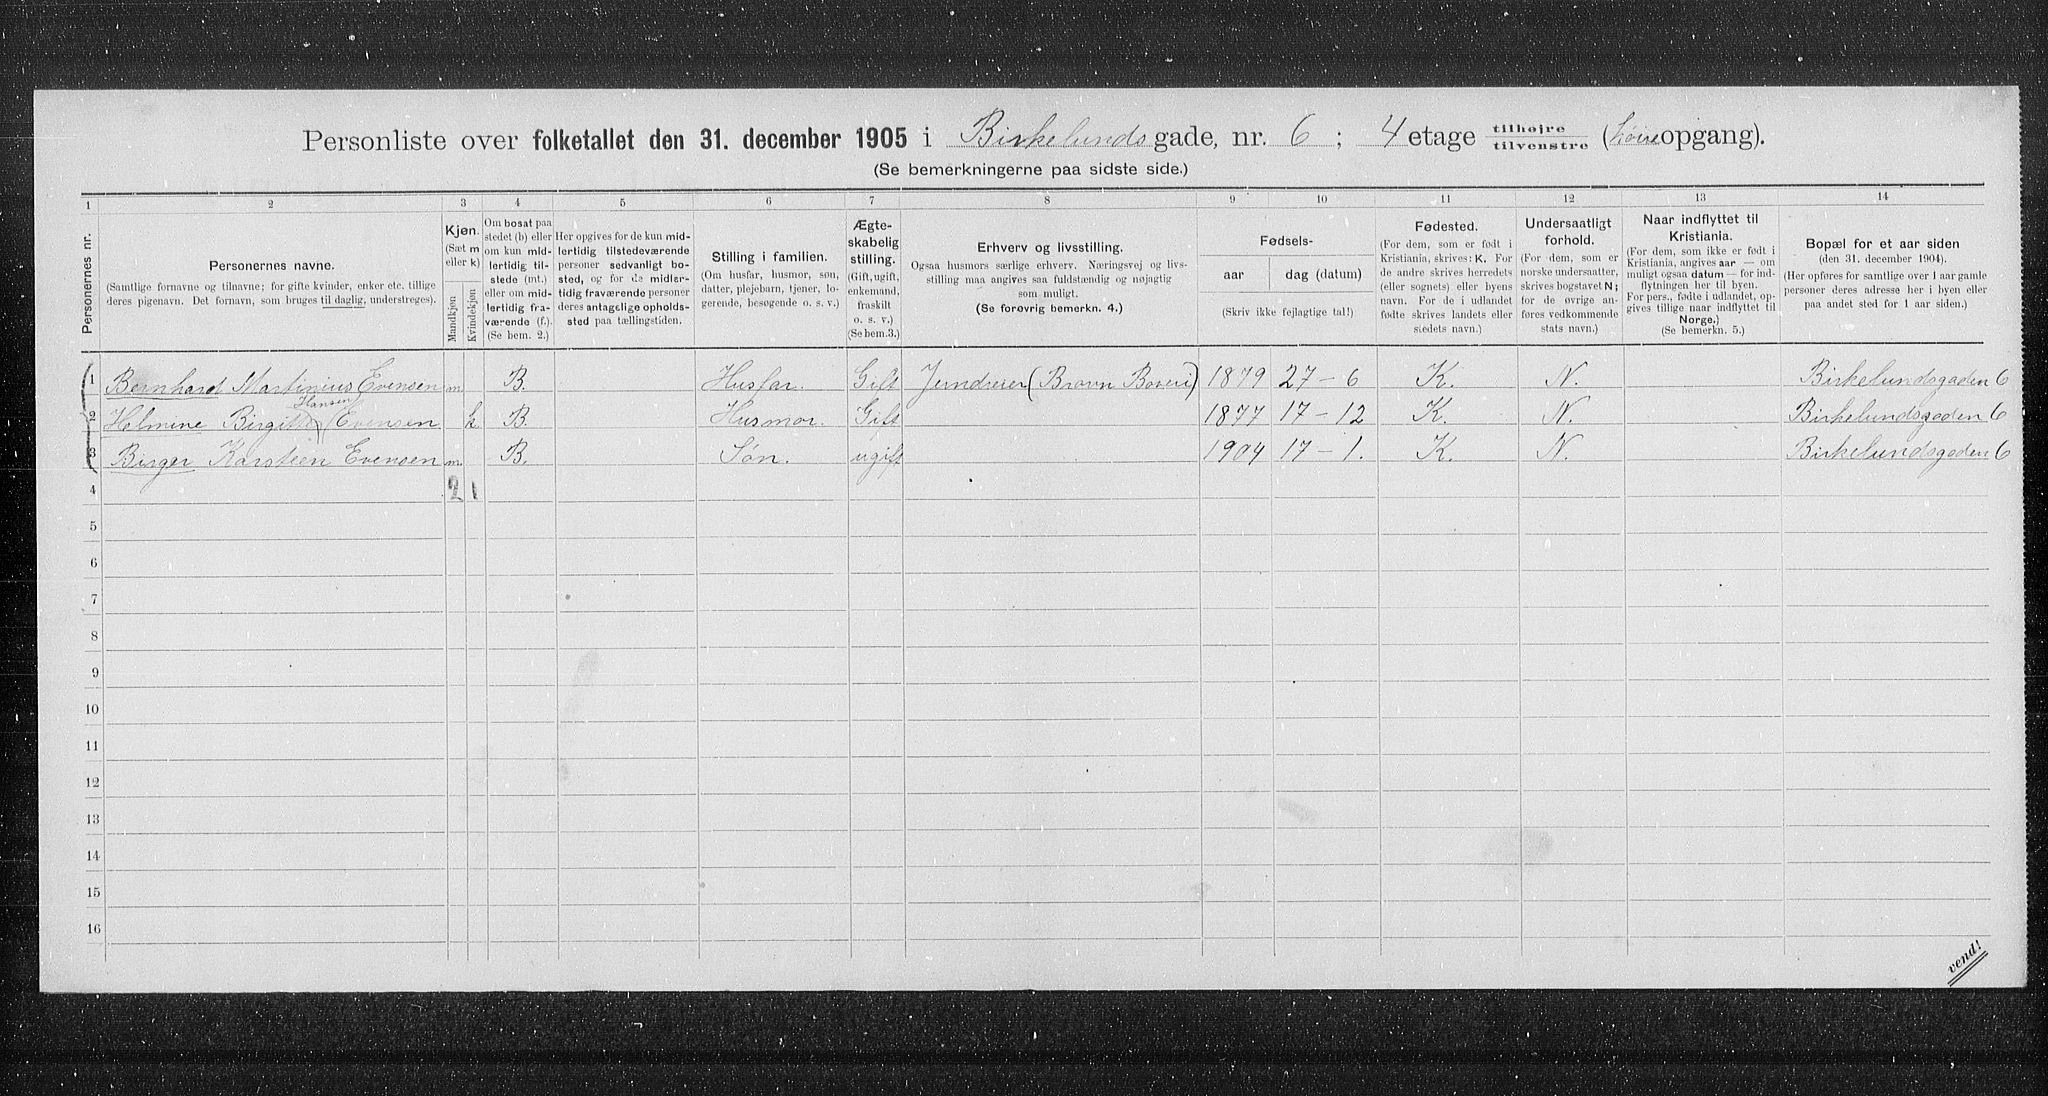 Personliste over folketallet den 31. december 1905 i Birkelunds gade, nr. 6 ; 4 etage tilhøjre / tilvenstre ( opgang).
(Se bemerkningerne paa sidste side.)
1 2 3 4 5 6 7 8 9 10 11 12 13 14
Personernes nr.
Personernes navne.
(Samtlige fornavne og tilnavne; for gifte kvinder, enker etc. tillige
deres pigenavn. Det fornavn, som bruges til daglig, understreges).
Kjøn.
(Sæt m
eller k)
Mandkjøn
Kvindekjøn
Om bosat paa
stedet (b) eller
om kun mid-
lertidig til-
stede (mt.)
eller om mid-
lertidig fra-
værende (f.)
(Se bem. 2.)
Her opgives for de kun mid-
lertidig tilstedeværende
personer sedvanligt bo-
sted, og for de midler-
tidig fraværende personer
deres antagelige opholds-
sted paa tællingstiden.
Stilling i familien.
(Om husfar, husmor, søn,
datter, plejebarn, tjener, lo-
gerende, besøgende o. s. v.)
Ægte-
skabelig
stilling.
(Gift, ugift,
enkemand,
fraskilt
o. s. v.)
(Se bem.3.)
Erhverv og livsstilling.
Ogsaa husmors særlige erhverv. Næringsvej og livs-
stilling maa angives saa fuldstændig og nøjagtig
som muligt.
(Se forøvrig bemerkn. 4.)
Fødsels-
aar dag (datum)
(Skriv ikke fejlagtige tal!)
Fødested.
(For dem, som er født i
Kristiania, skrives: K. For
de andre skrives herredets
(eller sognets) eller byens
navn. For de i udlandet
fødte skrives landets eller
stedets navn.)
Undersaatligt
forhold.
(For dem, som er
norske undersaatter,
skrives bogstavet N;
for de øvrige an-
føres vedkommende
stats navn.)
Naar indflyttet til
Kristiania.
(For dem, som ikke er født i
Kristiania, angives aar — om
muligt ogsaa datum — for ind-
flytningen her til byen.
For pers., fødte i udlandet, op-
gives tillige naar indflyttet til
Norge.)
(Se bemerkn. 5.)
Bopæl for et aar siden
(den 31. december 1904).
(Her opføres for samtlige over 1 aar gamle
personer deres adresse her i byen eller
paa andet sted for 1 aar siden.)
1 Bernhard Martinius Evensen m. B. Husfar. Gift Jerndreier (Bravn Boveri) 1879 27-6 K. N. Birkelundsgaden 6
Hansen
2 Helmine Birgitte (Evensen k. B. Husmor. Gift 1877 17-12 K. N. Birkelundsgaden 6
3 Birger Karsteen Evensen m. B. Søn. ugift 1904 17-1. K. N. Birkelundsgaden 6
4 2 1
5
6
7
8
9
10
11
12
13
14
15
16
vend!